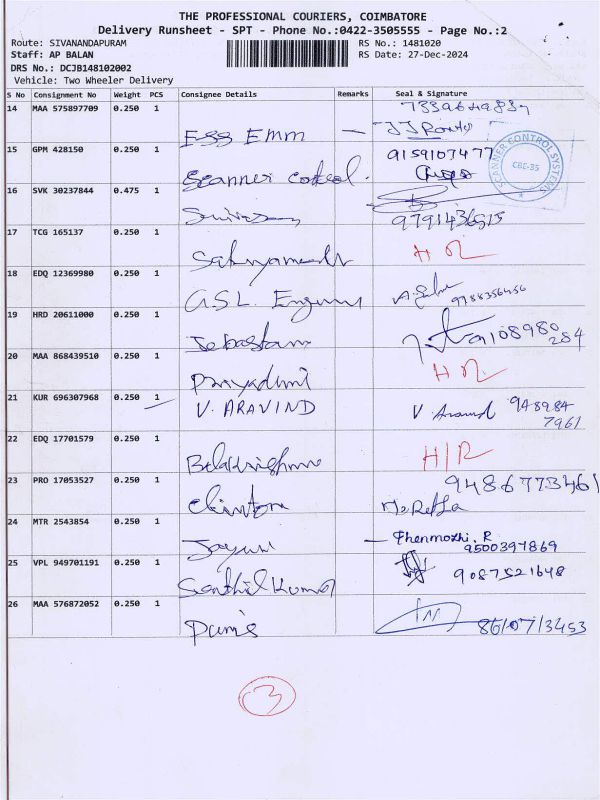 THE PROFESSIONAL COURIERS, COIMBATORE
Delivery Runsheet - SPT - Phone No.:0422-3505555 - Page No.:2
Route: SIVANANDAPURAM RS No.: 1481020
Staff: AP BALAN RS Date: 27-Dec-2024
DRS No.: DCJB148102002
Vehicle: Two Wheeler Delivery
S No Consignment No Weight PCS Consignee Details Remarks Seal & Signature
14 MAA 575897709 0.250 1
ESS Emm —
15 GPM 428150 0.250 1 9159107477
Scanner control.
SCANNER CONTROL SYSTEMS
CBE-35
16 SVK 30237844 0.475 1
9791436515
17 TCG 165137 0.250 1 H R
18 EDQ 12369980 0.250 1
G.S.L. 9788356456
19 HRD 20611000 0.250 1
Sebastian
20 MAA 868439510 0.250 1 H R
21 KUR 696307968 0.250 1
V. ARAVIND V. Aravind 948984
7961
22 EDQ 17701579 0.250 1 H/R
Balakrishnan
23 PRO 17053527 0.250 1 9486773461
Clinton
24 MTR 2543854 0.250 1 — Thenmozhi. R
9500397869
25 VPL 949701191 0.250 1 9087521648
Senthil Kumar
26 MAA 576872052 0.250 1
8610713453
3